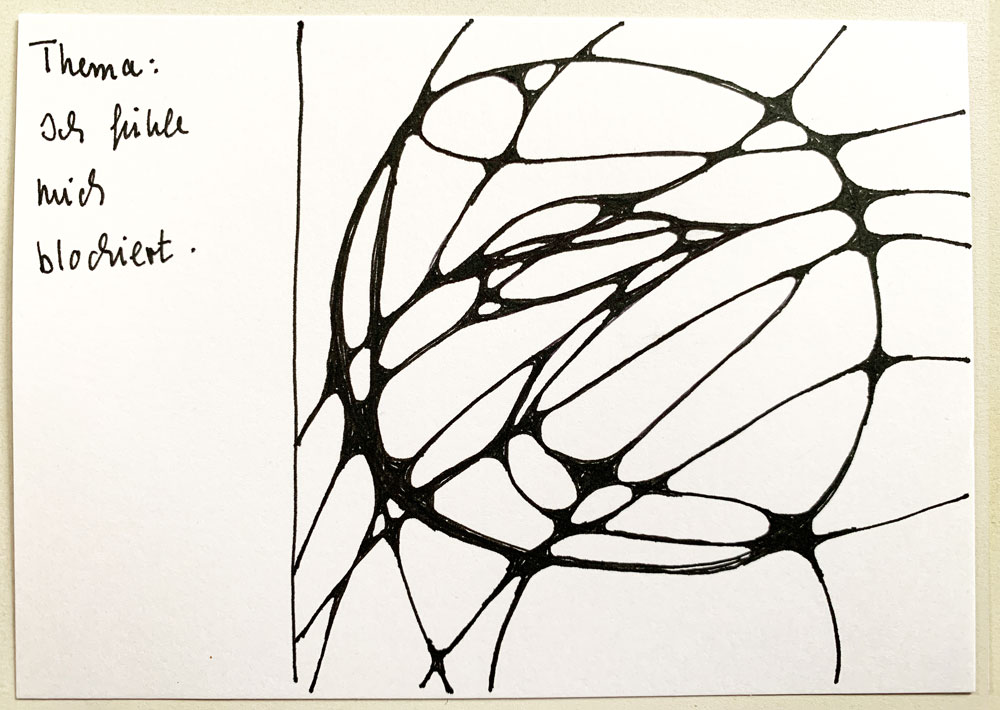 Thema:
Ich fühle
mich
blockiert.